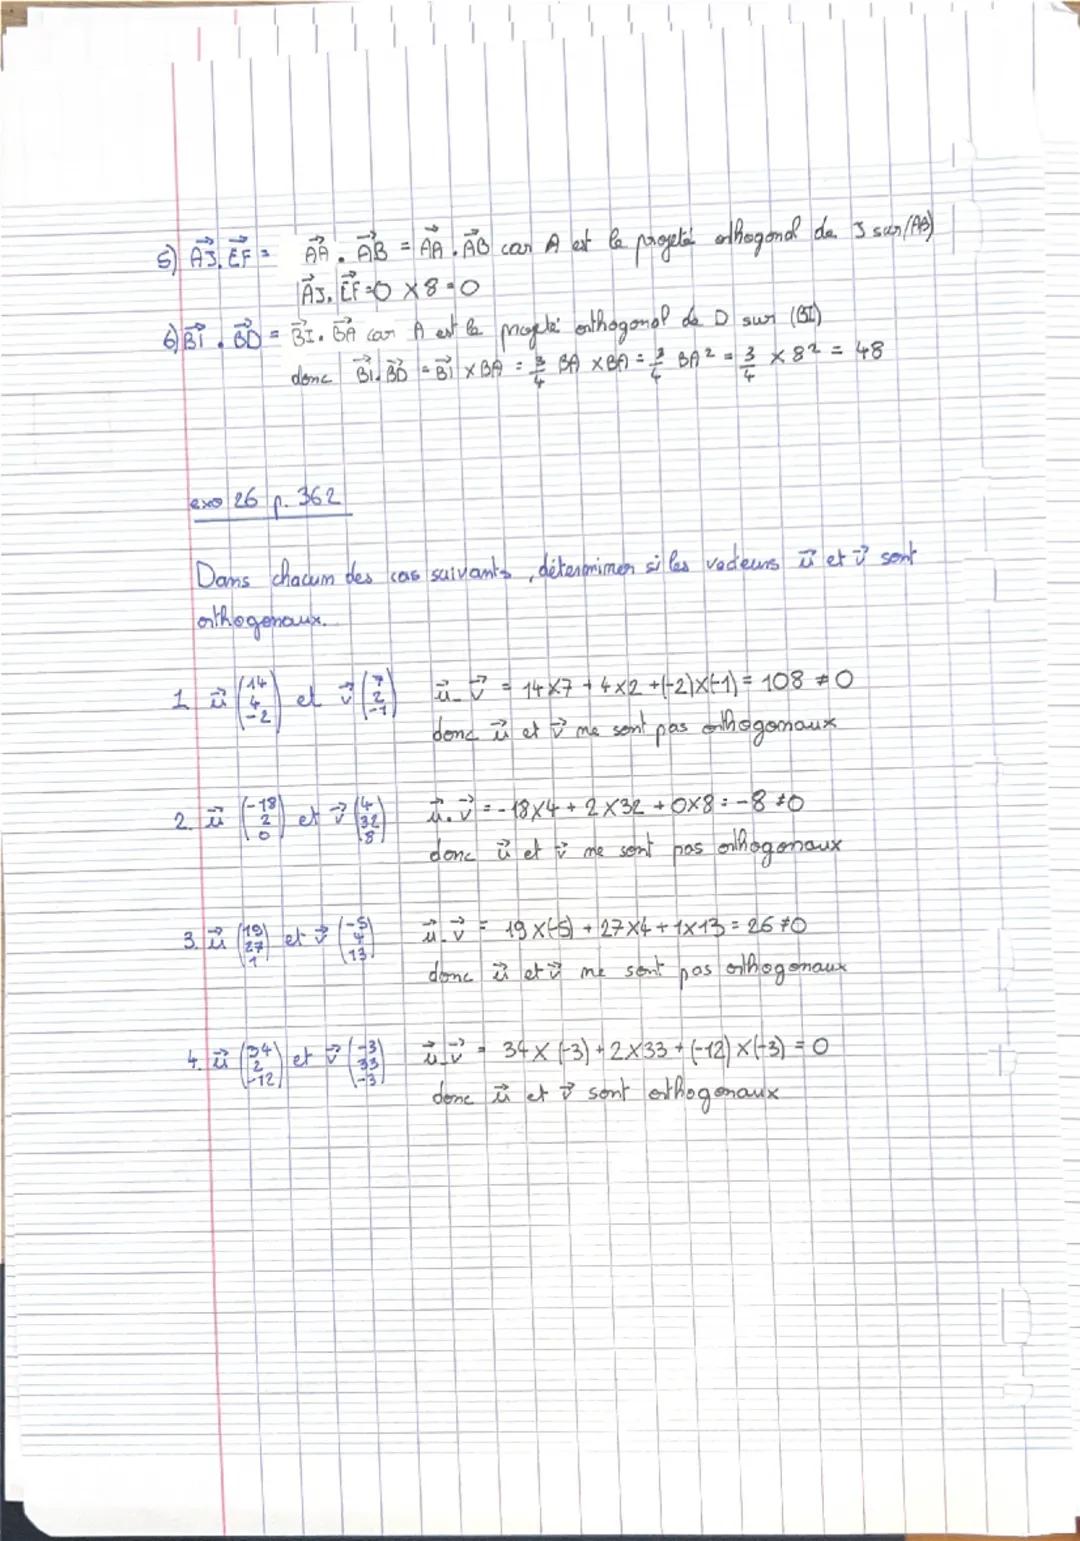 5) AJ⃗. EF⃗ = AA⃗ . AB⃗ = AA⃗ . AB⃗ car A est le projeté orthogonal de J sur (AB)
AJ⃗. EF⃗ = 0 × 8 = 0
6) BI⃗ . BD⃗ = BI⃗ . BA⃗ car A est le projeté orthogonal de D sur (BI)
donc BI⃗. BD⃗ = BI⃗ × BA = 3/4 BA × BA = 3/4 BA² = 3/4 × 8² = 48
exo 26 p. 362
Dans chacun des cas suivants, déterminer si les vecteurs u⃗ et v⃗ sont
orthogonaux.
1. u⃗ (14 4 -2) et v⃗ (7 2 -1) u⃗ . v⃗ = 14×7 + 4×2 + (-2)×(-1) = 108 ≠ 0
donc u⃗ et v⃗ ne sont pas orthogonaux
2. u⃗ (-18 2 0) et v⃗ (4 32 8) u⃗ . v⃗ = -18×4 + 2×32 + 0×8 = -8 ≠ 0
donc u⃗ et v⃗ ne sont pas orthogonaux
3. u⃗ (19 27 1) et v⃗ (-5 4 13) u⃗ . v⃗ = 19×(-5) + 27×4 + 1×13 = 26 ≠ 0
donc u⃗ et v⃗ ne sont pas orthogonaux
4. u⃗ (34 2 -12) et v⃗ (-3 33 -3) u⃗ . v⃗ = 34×(-3) + 2×33 + (-12)×(-3) = 0
donc u⃗ et v⃗ sont orthogonaux